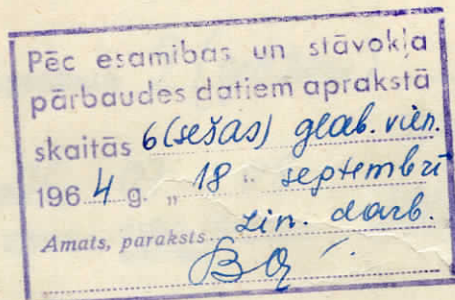 Pēc esamības un stāvokļa
pārbaudes datiem aprakstā
skaitās 6 (sešas) glab. vien.
1964. g. „ 18 " septembrī
Amats, paraksts zin. darb.